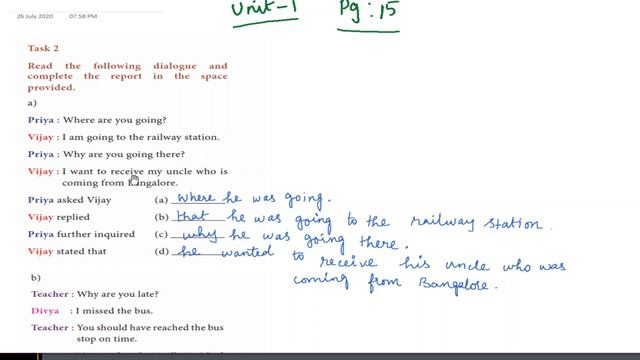 Unit-1 Pg: 15
26 July 2020 07:58 PM
Task 2
Read the following dialogue and
complete the report in the space
provided.
a)
Priya : Where are you going?
Vijay : I am going to the railway station.
Priya : Why are you going there?
Vijay : I want to receive my uncle who is
coming from Bangalore.
Priya asked Vijay (a) where he was going.
Vijay replied (b) that he was going to the railway station.
Priya further inquired (c) why he was going there.
Vijay stated that (d) he wanted to receive his uncle who was
coming from Bangalore.
b)
Teacher : Why are you late?
Divya : I missed the bus.
Teacher : You should have reached the bus
stop on time.